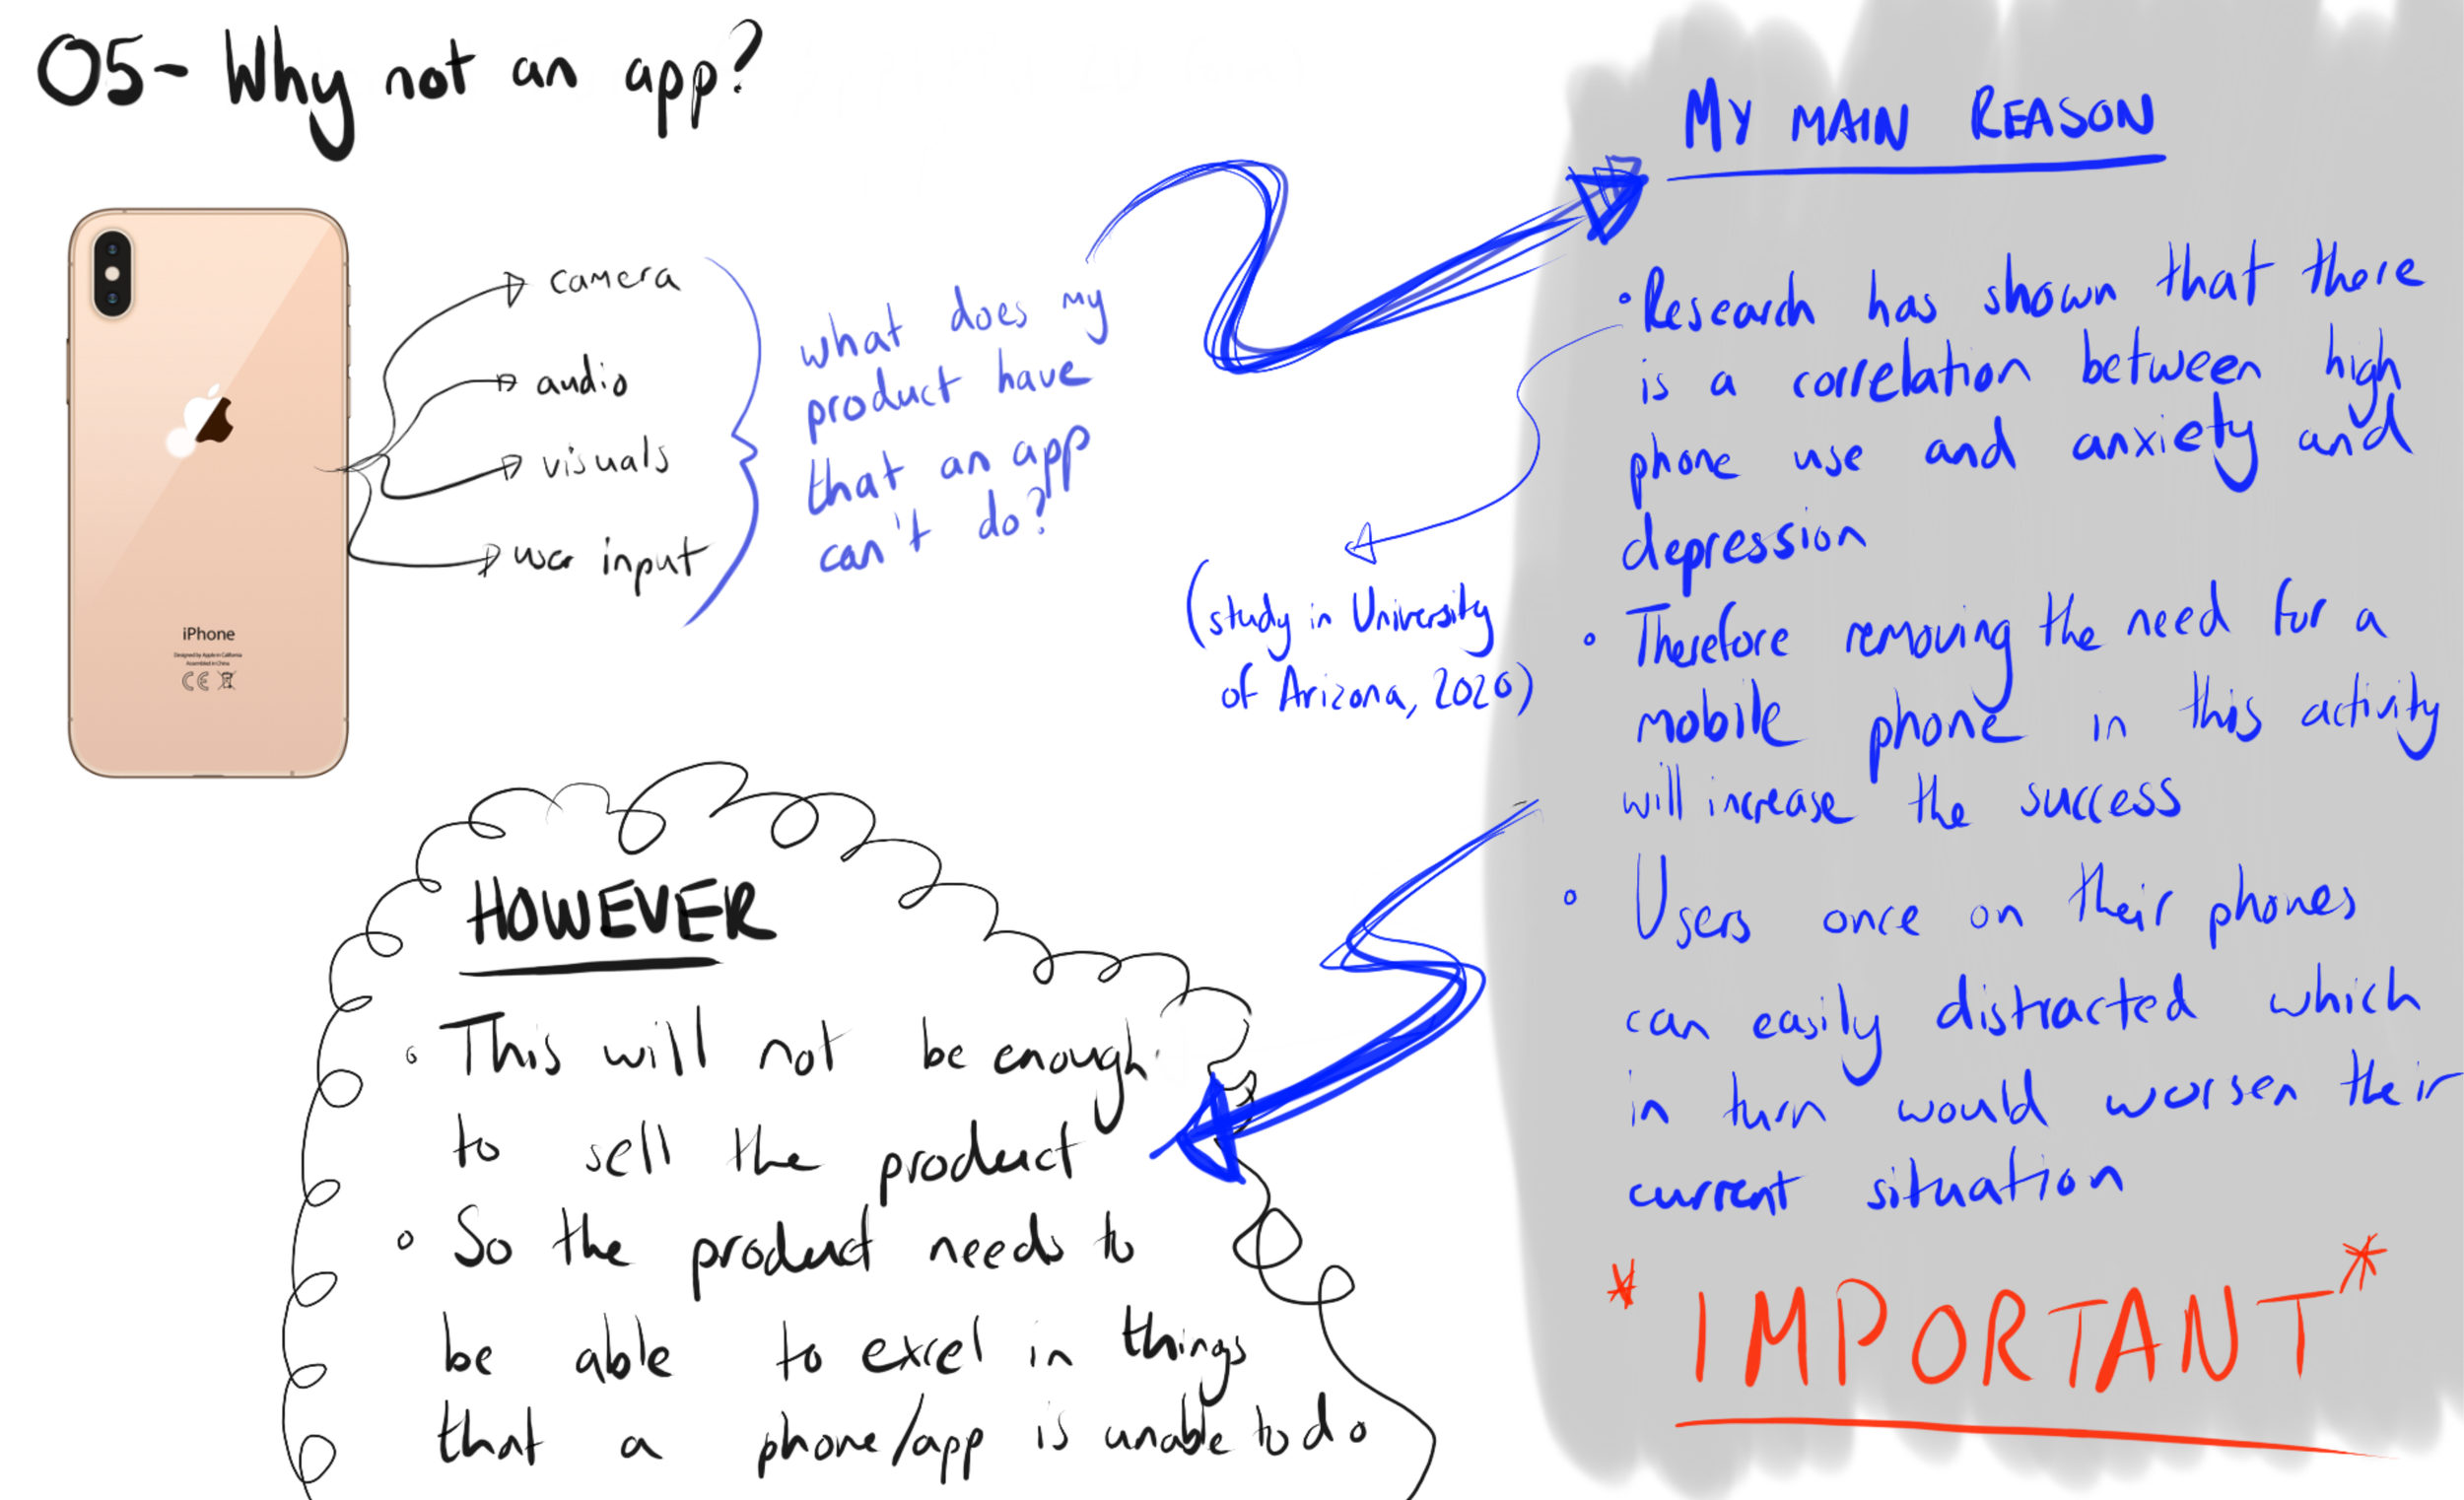 05- Why not an app?
camera
audio
visuals
user input
iPhone
Designed by Apple in California
Assembled in China
CE
what does my
product have
that an app
can't do?
MY MAIN REASON
• Research has shown that there
is a correlation between high
phone use and anxiety and
depression
(study in University
of Arizona, 2020)
• Therefore removing the need for a
mobile phone in this activity
will increase the success
• Users once on their phones
can easily distracted which
in turn would worsen their
current situation
* IMPORTANT *
HOWEVER
• This will not be enough
to sell the product
• So the product needs to
be able to excel in things
that a phone/app is unable to do